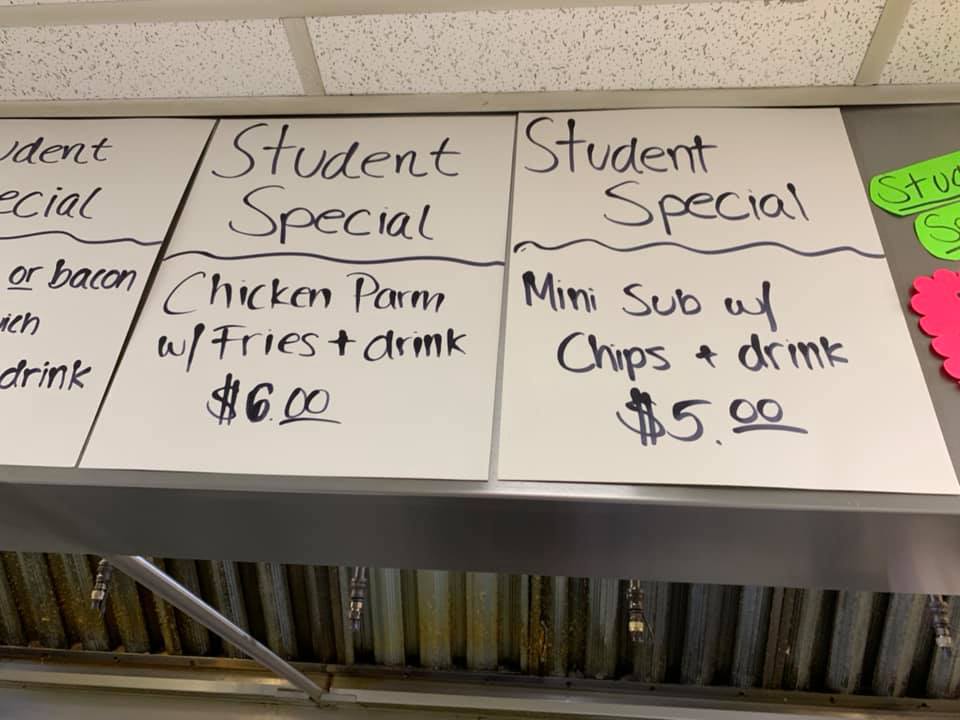 or bacon
drink
Student
Special
Chicken Parm
w/ Fries + drink
$6.00
Student
Special
Mini Sub w/
Chips + drink
$5.00